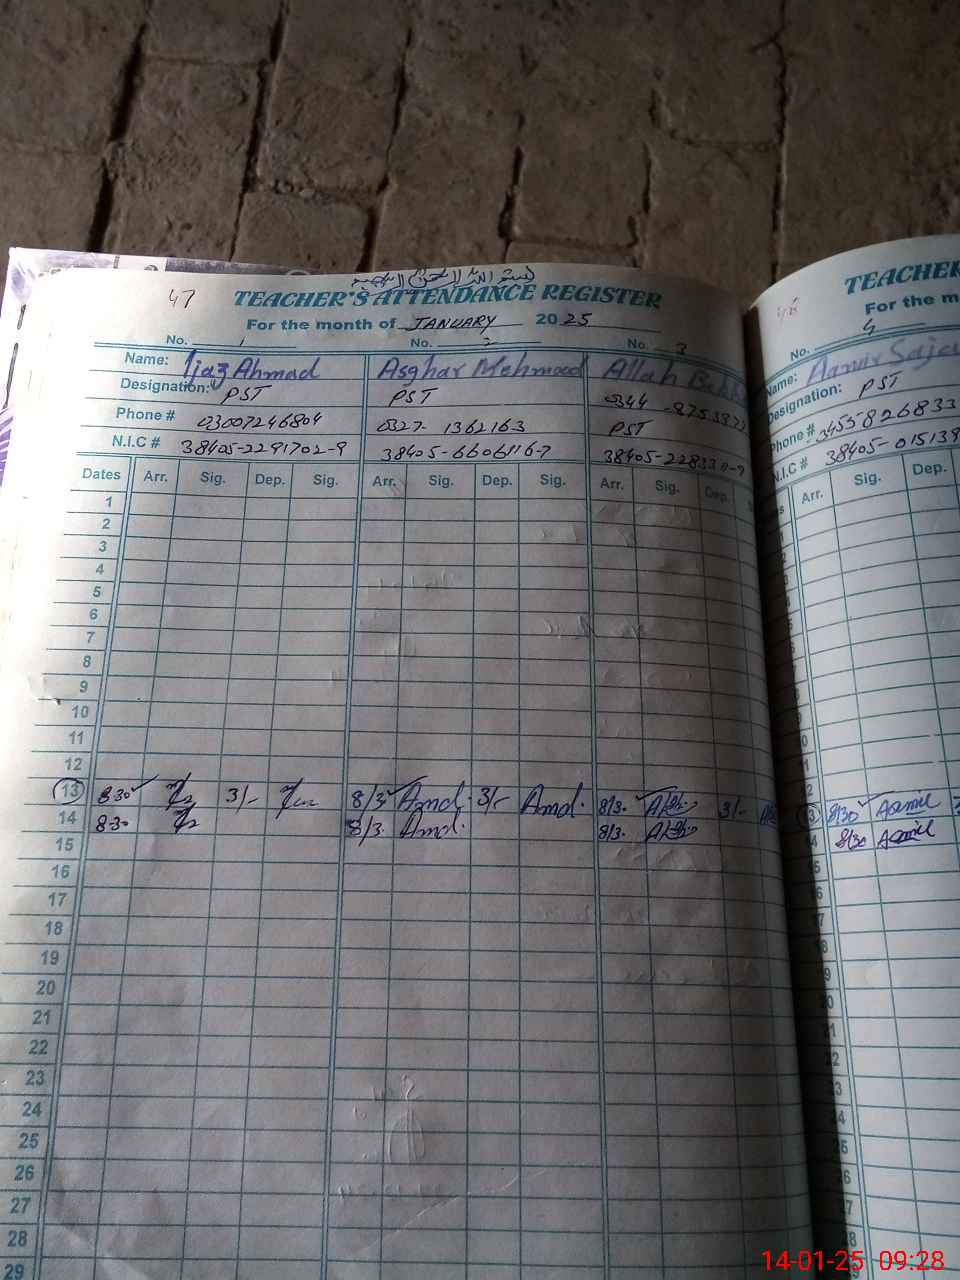 بسم اللہ الرحمن الرحیم
47 TEACHER'S ATTENDANCE REGISTER
For the month of JANUARY 2025
No. 1 No. 2 No. 3
Name: Ijaz Ahmad Asghar Mehmood Allah
Designation: PST PST 0344
Phone # 03007246804 0327-1362163 PST
N.I.C # 38405-2291702-9 38405-6606116-7
Dates Arr. Sig. Dep. Sig. Arr. Sig. Dep. Sig. Arr. Sig. Dep.
1
2
3
4
5
6
7
8
9
10
11
12
13 830 3/- 8/3 Amd. 3/- Amd. 8/3. 3/-
14 830 8/3. Amd. 8/3.
15
16
17
18
19
20
21
22
23
24
25
26
27
28
29
TEACHER
For the m
No. 4
Name: Aamir
Designation: PST
Phone # 3455826833
N.I.C # 38405-015139
Arr. Sig. Dep.
8/30 Aamir
8/30 Aamir
14-01-25 09:28